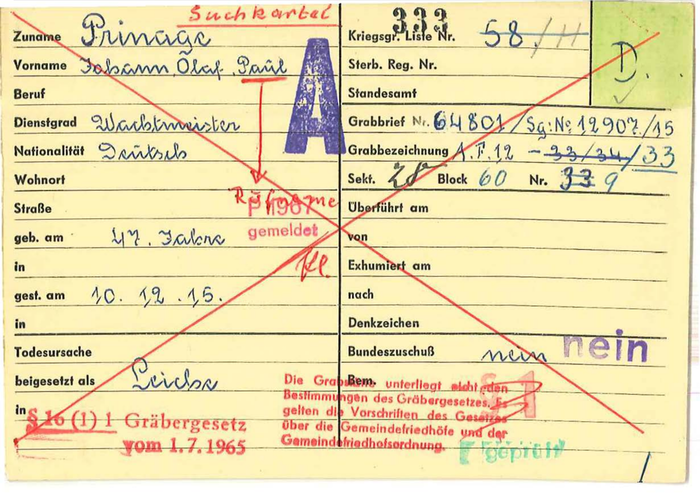 Suchkartei
Zuname Prinage
Vorname Johann Olaf Paul
Beruf
Dienstgrad Wachtmeister
Nationalität Deutsch
Wohnort
Rufname
Straße
P 1967
gemeldet
geb. am 47. Jahre
in
gest. am 10. 12. 15.
in
Todesursache
beigesetzt als Leiche
in
§ 16 (1) 1 Gräbergesetz
vom 1.7.1965
A
333
Kriegsgr. Liste Nr. 58/H
D.
Sterb. Reg. Nr.
Standesamt
Grabbrief Nr. 64801/Sg: No 12907/15
Grabbezeichnung A.F.12 - 33/34/33
Sekt. 28 Block 60 Nr. 33 9
Überführt am
von
Exhumiert am
nach
Denkzeichen
Bundeszuschuß nein nein
Bem.
Die Grabstätte unterliegt nicht den
Bestimmungen des Gräbergesetzes. Es
gelten die Vorschriften des Gesetzes
über die Gemeindefriedhöfe und der
Gemeindefriedhofsordnung.
§ 1
geprüft